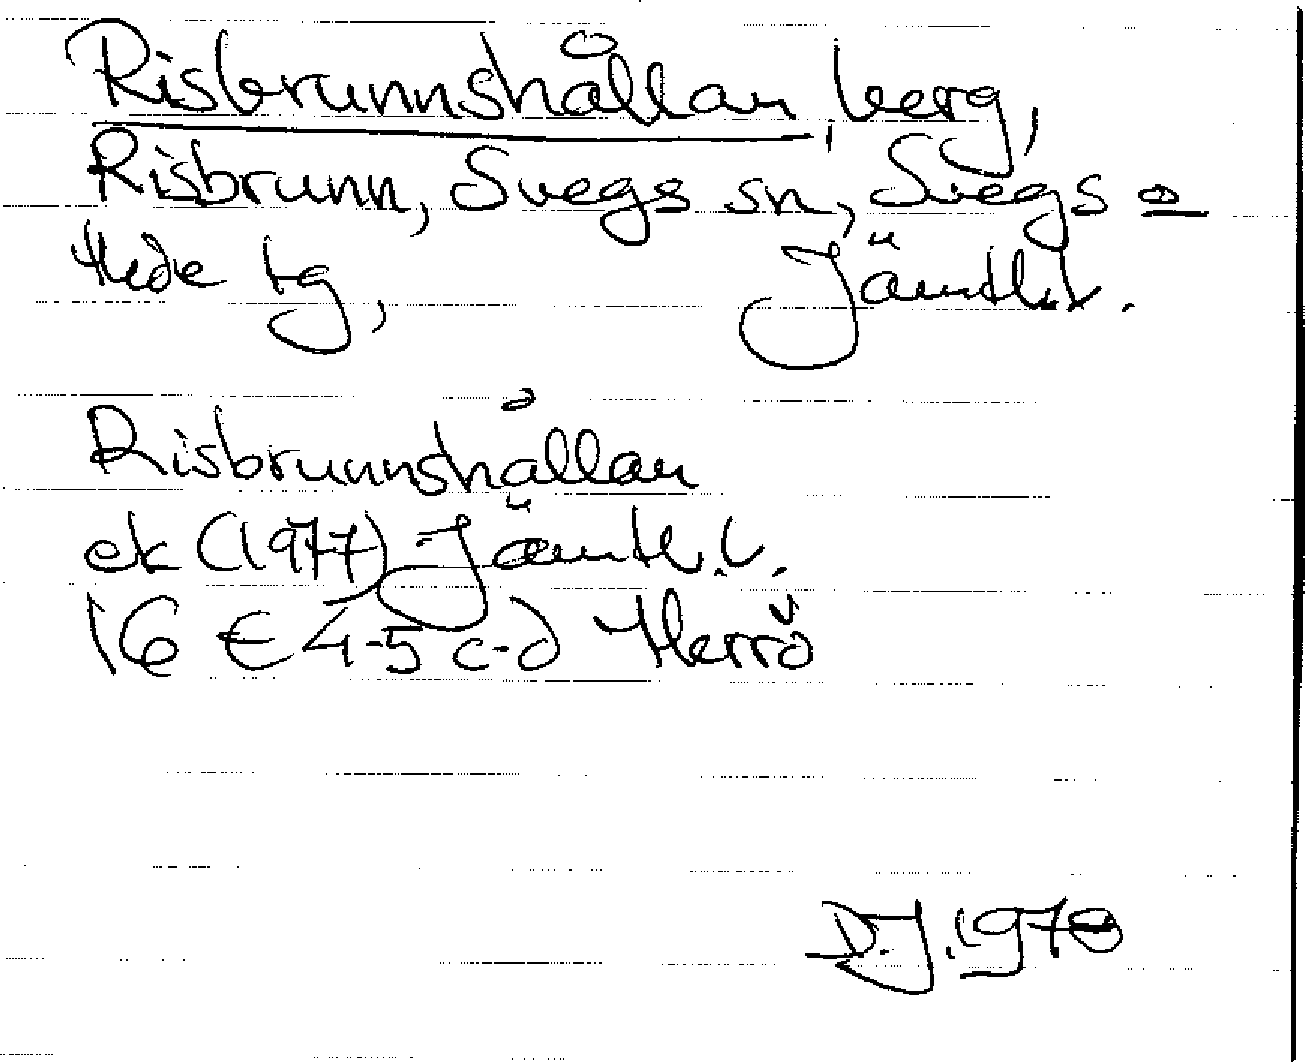 Risbrunnshållan, berg,
Risbrunn, Svegs sn, Svegs o
Hede tg, Jämtl.l.
Risbrunnshållan
ek (1977) Jämtl.l.
16 E 4-5 c-d Herrö
D.J. 1978